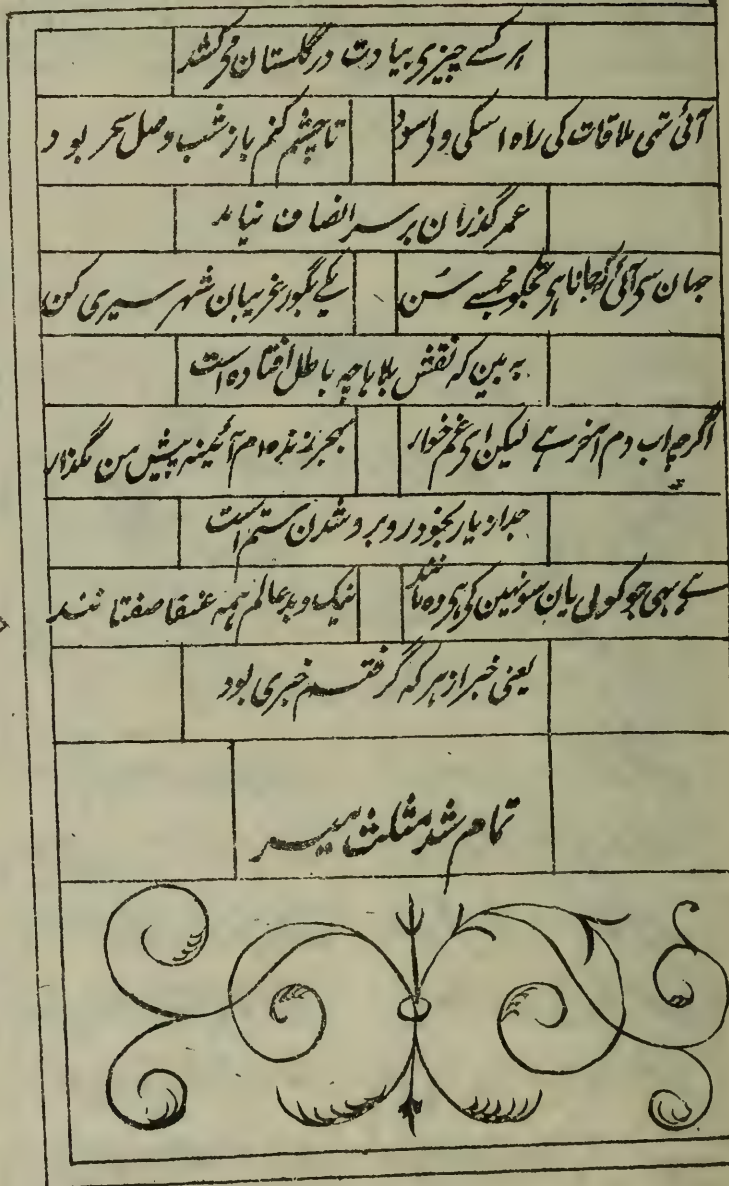 ہر کسے چیزی بیادت در گلستان می کشد
آئی تہی ملاقات کی راہ اسکی تا چشم کنم باز شب وصل سحر بود
عمر گذران بر سر انصاف نیامد
جہان سی آئی جانا ہی مجہسے سُن یکے بگور غریبان شہر سیری کن
بہ بین کہ نقش بلاہا چہ باطل افتادہ است
اگرچہ اب دم آخر ہے لیکن ای غم خوار بہجر زندہ ام آئینہ پیش من مگذار
جدا از یار بخود روبرو شدن ستم است
ہے بہی جو کوئی یان سو نہین کی ہی وہ مانند نیک و بد عالم ہمہ عنقا صفتانند
یعنی خبر از ہر کہ گرفتم خبری بود
تمام شد مثلث میر